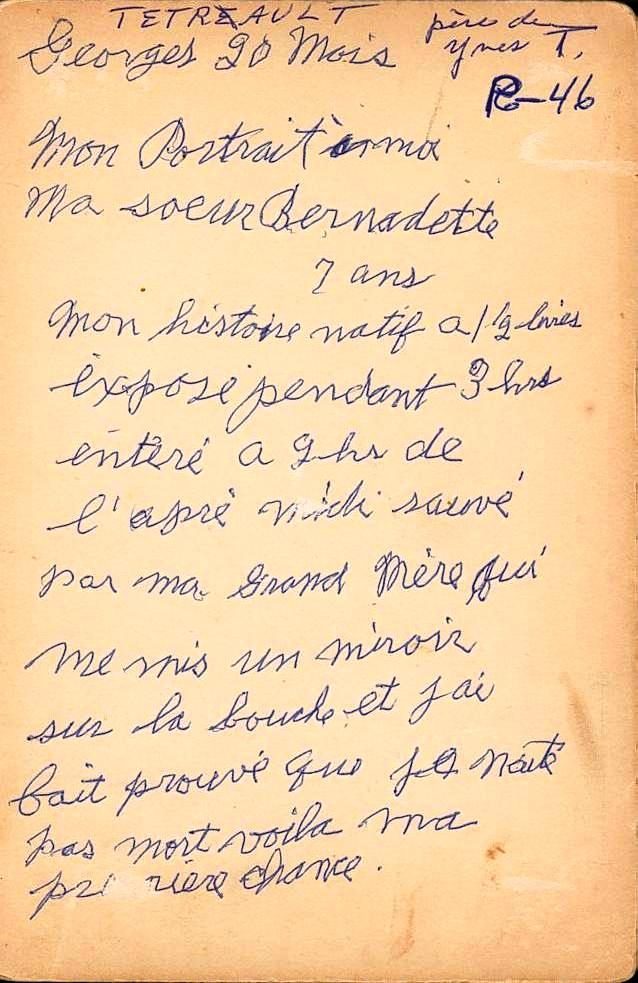 TETREAULT
père de
Georges 20 Mois
Yves T.
R-46
Mon Portrait a moi
Ma soeur Bernadette
7 ans
Mon histoire natif a 1 1/2 livres
exposé pendant 3 hrs
enteré a 2 hs de
l'apré midi sauvé
par ma Grand Mère qui
me mis un miroir
sur la bouche et j'ai
fait prouvé que je n'eté
pas mort voila ma
premiere chance.